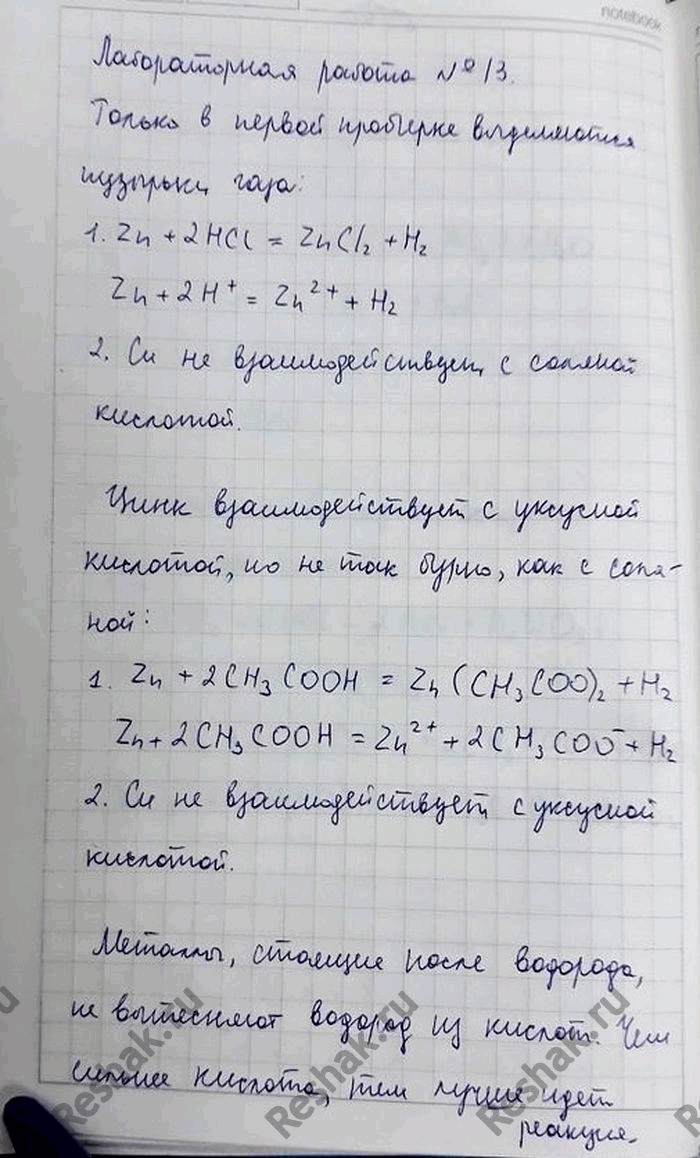 notebook
Лабораторная работа №13.
Только в первой пробирке выделяются
пузырьки газа:
1. Zn + 2HCl = ZnCl₂ + H₂
Zn + 2H⁺ = Zn²⁺ + H₂
2. Cu не взаимодействует с соляной
кислотой.
Цинк взаимодействует с уксусной
кислотой, но не так бурно, как с соля-
ной:
1. Zn + 2CH₃COOH = Zn(CH₃COO)₂ + H₂
Zn + 2CH₃COOH = Zn²⁺ + 2CH₃COO⁻ + H₂
2. Cu не взаимодействует с уксусной
кислотой.
Металлы, стоящие после водорода,
не вытесняют водород из кислот. Чем
сильнее кислота, тем лучше идет
реакция.
Reshak.ru
Reshak.ru
Reshak.ru